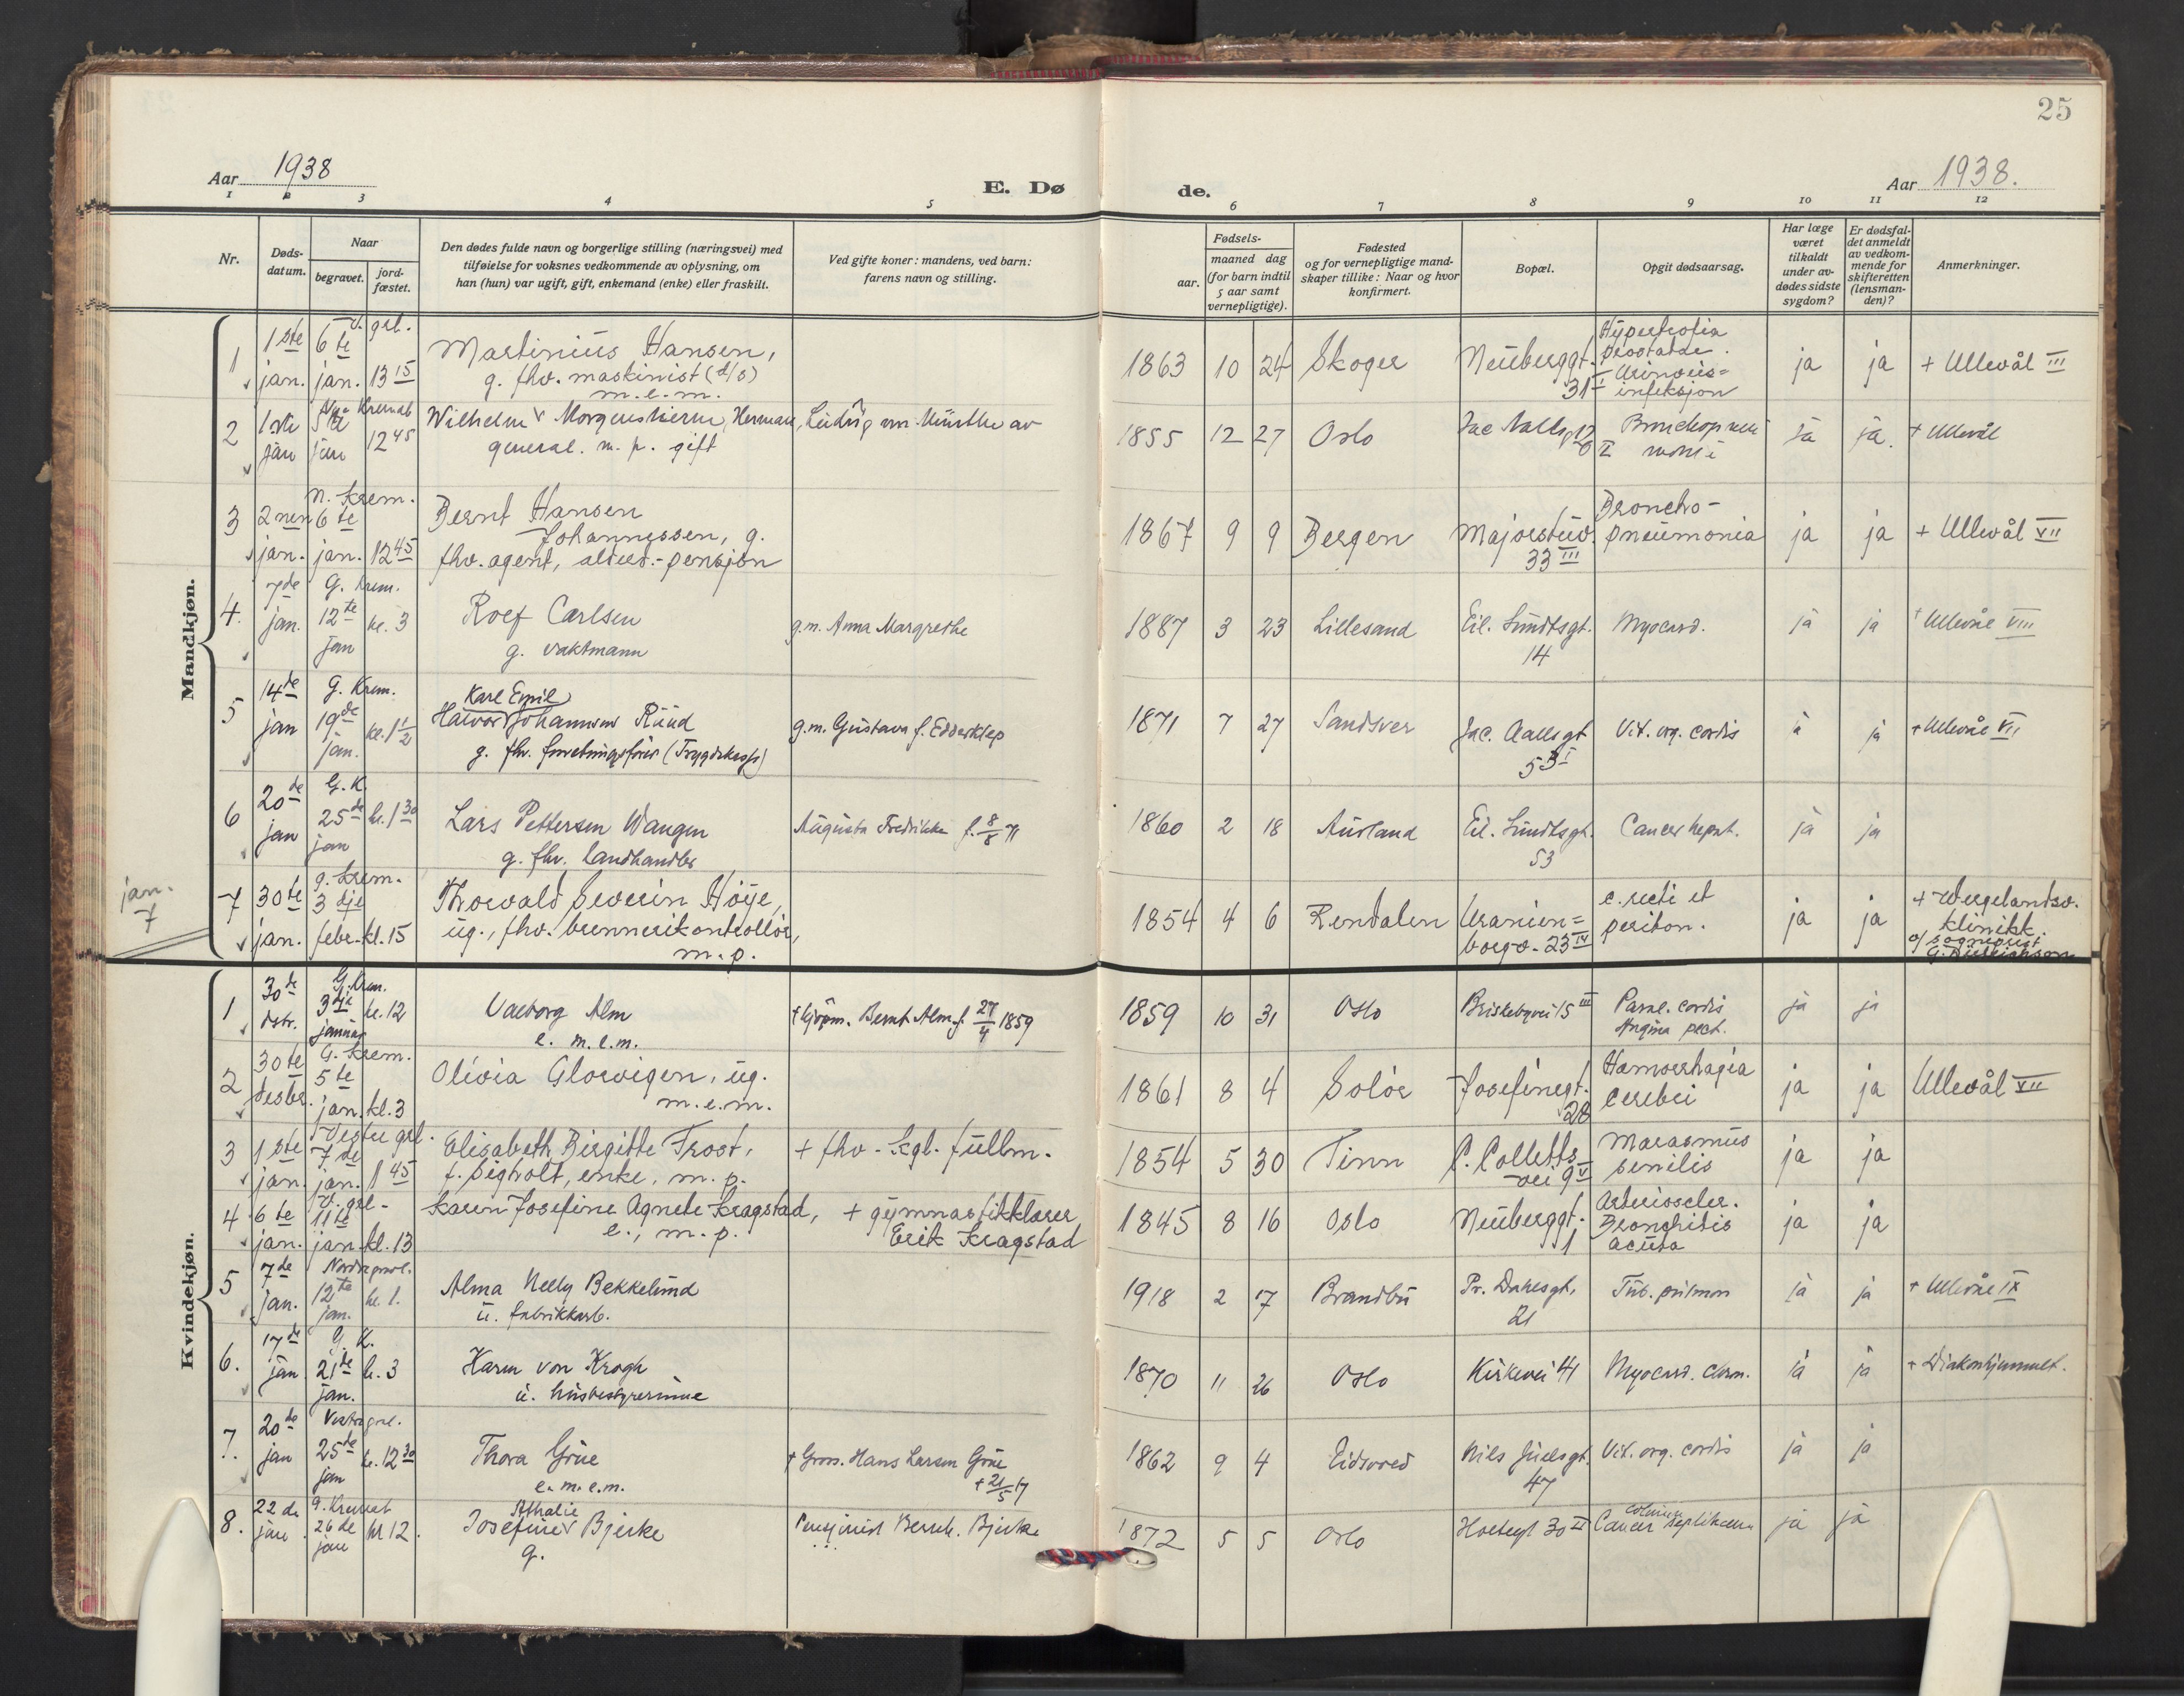 25
Aar 1938
E. Døde.
Aar 1938.
1 2 3 4 5 6 7 8 9 10 11 12
Nr.
Døds-datum.
Naar
begravet.
jord-fæstet.
Den dødes fulde navn og borgerlige stilling (næringsvei) med
tilføielse for voksnes vedkommende av oplysning, om
han (hun) var ugift, gift, enkemand (enke) eller fraskilt.
Ved gifte koner: mandens, ved barn:
farens navn og stilling.
Fødsels-
aar. maaned dag
(for barn indtil
5 aar samt
vernepligtige).
Fødested
og for vernepligtige mand-
skaper tillike: Naar og hvor
konfirmert.
Bopæl.
Opgit dødsaarsag.
Har læge
været
tilkaldt
under av-
dødes sidste
sygdom?
Er dødsfal-
det anmeldt
av vedkom-
mende for
skifteretten
(lensman-
den)?
Anmerkninger.
Mandkjøn.
1 1ste jan. V. grl. 6te jan. 13 15 Martinius Hansen,
g. fhv. maskinist (d/s)
m.e.m.
1863 10 24 Skoger Neuberggt. 31 I Hypertrofia prostatae. Urinveis=infeksjon ja ja + Ullevål III
2 1ste jan 5te jan 12 45 Wilhelm Morgenstierne, Herman, Ludvig von Munthe av
general. m. p. gift
1855 12 27 Oslo Jac Aallsg 12 Bronchopneumoni ja ja. + Ullevål
3 2nen jan. N. Krem. 6te jan. 12 45 Bernt Hansen
Johannessen, g.
fhv. agent, alders.-pensjon
1867 9 9 Bergen Majorstuv. 33 III Broncho-pneumonia ja ja + Ullevål VII
4. 7de jan. G. Krem. 12te jan kl. 3 Rolf Carlsen
g. vaktmann
g.m. Anna Margrethe
1887 3 23 Lillesand Eil. Sundtsgt. 14 Myocard. ja ja + Ullevål VIII
5 14de jan G. Krem. 19de jan. kl. 1 1/2 Karl Emil
Halvor Johannsen Ruud
g. fhv. forretningsfører (Trygdekasse)
g.m. Gustava f. Edderklep
1871 7 27 Sandsver Jac. Aallsgt 53 I Vit. org. cordis ja + Ullevål VII
6 20de jan G.K. 25de jan kl. 1 30 Lars Pettersen Wangen
g. fhv. landhandler
Augusta Fredrikke f. 8/8 71
1860 2 18 Aurland Eil. Sundtsgt. 53 Cancer hepat. ja ja
jan. 7
7 30te jan. g. Krem. 3dje febr. kl. 15 Thorvald Severin Høye,
ug., fhv. brennerikontrollør,
m.p.
1854 4 6 Rendalen Uranien=borgv. 23 IV c. recti et periton. ja ja + Wergelandsv. klinikk. v/ sogneprest
Kvindekjøn.
1 30te dsbr. G. Krem. 3dje januar kl. 12 Valborg Alm
e. m.e.m.
+ kjøpm. Bernt Alm f. 27/4 1859
1859 10 31 Oslo Briskebyvei 15 III Paral. cordis Angina pect. ja ja
2 30te desbr. G. Krem. 5te jan. kl. 3 Olivia Glorvigen, ug.
m.e.m.
1861 8 4 Solør Josefinegt. 28 Hæmorrhagia cerebri ja ja Ullevål VII
3 1ste jan. Vestre grl. 7de jan. 1 45 Elisabeth Birgitte Frost,
f. Sigholt, enke, m. p.
+ fhv. kgl. fullm.
1854 5 30 Tinn C. Colletts vei 9 V Marasmus senilis ja ja
4 6te jan. V. grl. 11te jan. kl. 13 Karen Josefine Agnete Kragstad,
e., m. p.
+ gymnastikklærer
Erik Kragstad
1845 8 16 Oslo Neuberggt. 1 Arterioscler. Bronchitis acuta ja ja
5 7de jan. Nordre gravl. 12te jan. kl. 1. Alma Nelly Bekkelund
u. fabrikkarb.
1918 2 17 Brandbu Pr. Dahlsgt. 21 Tub. pulmon ja ja + Ullevål IX
6. 17de jan G. K. 21de jan. kl. 3 Karen von Krogh
u. husbestyrerinne
1870 11 26 Oslo Kirkevei 41 Myocard. chron. ja ja + Diakonhjemmet.
7. 20de jan Vestre gral. 25de jan kl. 12 30 Thora Grue
e. m.e.m.
+ Gross. Hans Larsen Grue
+ 21/5 17
1862 9 4 Eidsvold Nils Juelsgt. 47 Vit. org. cordis ja ja
8. 22de jan g. Kremat 26de jan kl 12. Josefine Athalie Bjerke
g.
Pensjonist Bernh. Bjerke
1872 5 5 Oslo Holtegt 30 II Cancer ja ja